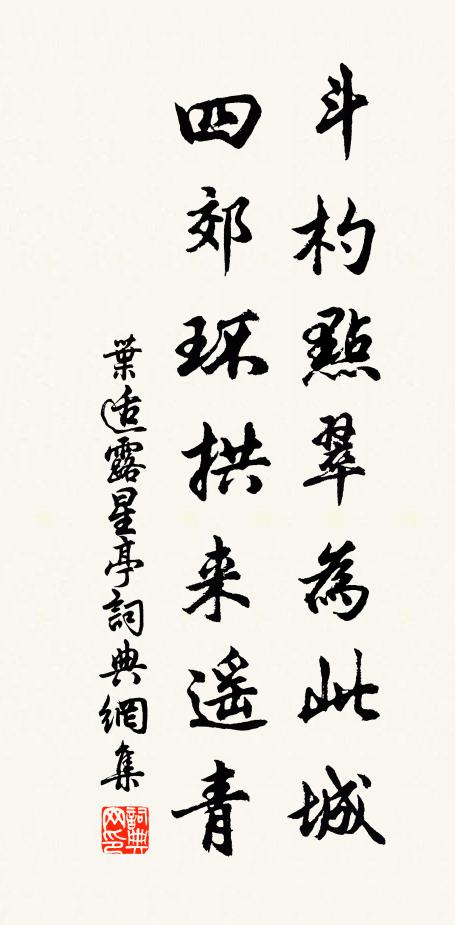 斗杓點翠為此城
四郊环拱来遥青
葉适露星亭詞典網集
詞典网印